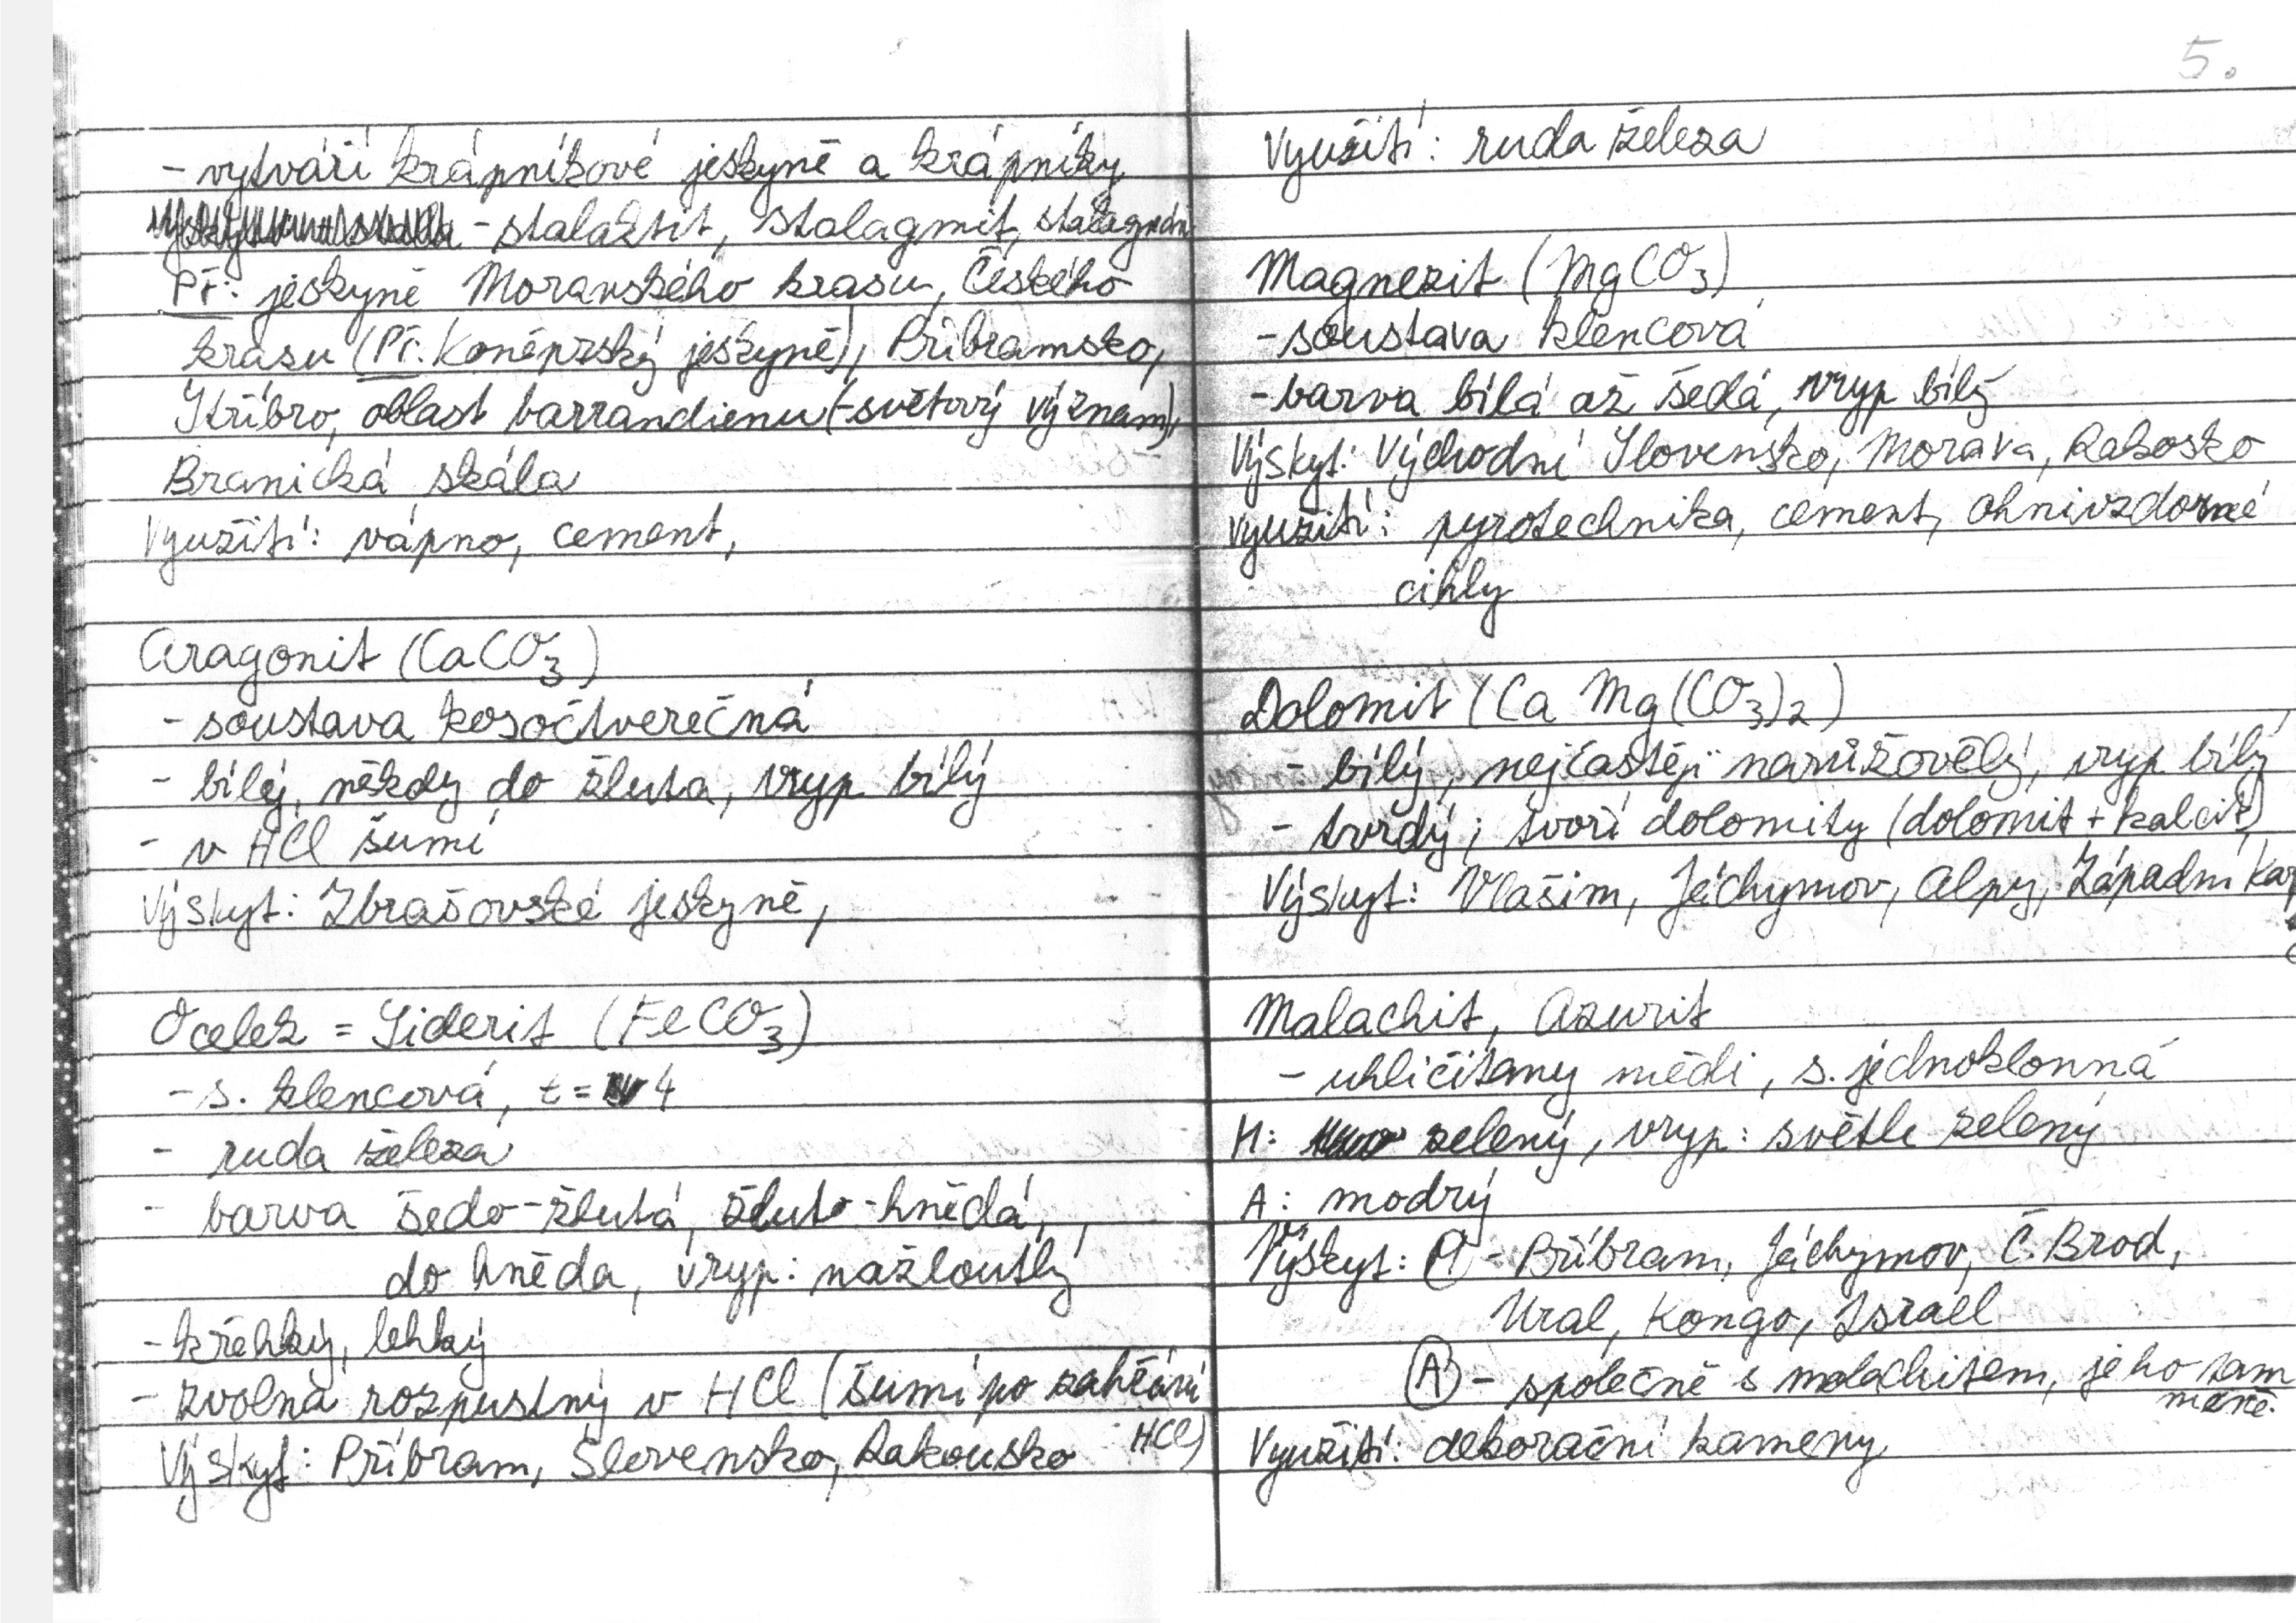 - vytváří krápníkové jeskyně a krápníky
- stalaktit, stalagmit,
Př: jeskyně Moravského krasu, Českého
krasu (Př. Koněprský jeskyně), Příbramsko,
Stříbro, oblast barrandienu (-světový význam),
Branická skála
Využití: vápno, cement,
Aragonit (CaCO3)
- soustava kosočtverečná
- bílý, někdy do žluta, vryp bílý
- v HCl šumí
Výskyt: Zbrašovské jeskyně,
Ocelek = Siderit (FeCO3)
- s. klencová, t = 4
- ruda železa
- barva šedo-žlutá, žluto-hnědá,
do hněda, vryp: nažloutlý
- křehký, lehký
- zvolna rozpustný v HCl (šumí po zahřání
HCl)
Výskyt: Příbram, Slovensko, Rakousko
5.
Využití: ruda železa
Magnezit (MgCO3)
- soustava klencová
- barva bílá až šedá, vryp bílý
Výskyt: Východní Slovensko, Morava, Rakosko
využití: pyrotechnika, cement, ohnivzdorné
cihly
Dolomit (Ca Mg(CO3)2)
- bílý, nejčastěji narůžovělý, vryp bílý
- tvrdý; tvoří dolomity (dolomit + kalcit)
Výskyt: Vlašim, Jáchymov, Alpy, Západní Kar
Malachit, Azurit
- uhličitany mědi, s. jednoklonná
M: zelený, vryp: světle zelený
A: modrý
Výskyt: M - Příbram, Jáchymov, Č. Brod,
Ural, Kongo, Israel
A - společně s malachitem, je ho tam
méně.
Využití: dekorační kameny